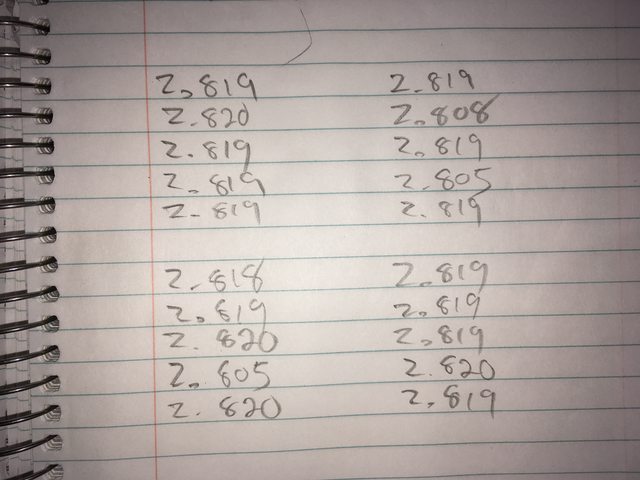 2.819 2.819
2.820 2.808
2.819 2.819
2.819 2.805
2.819 2.819
2.818 2.819
2.819 2.819
2.820 2.819
2.805 2.820
2.820 2.819